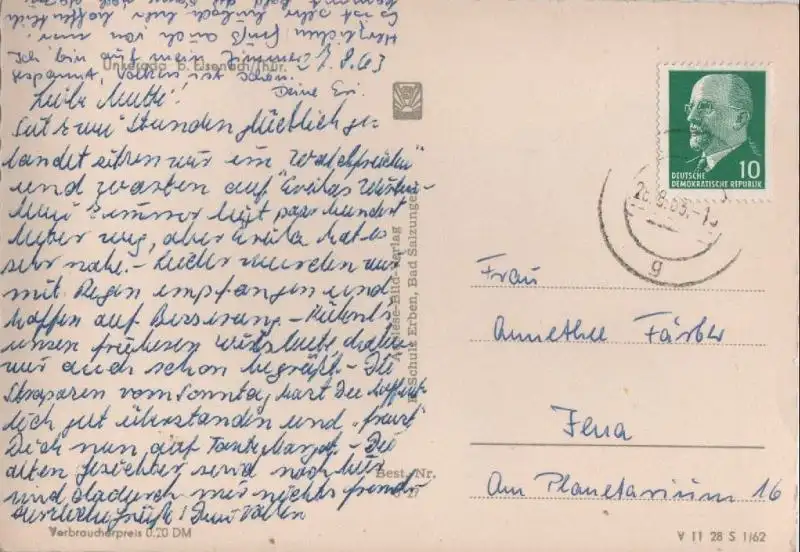 Herzlichen Gruß auch von mir!
Ich bin auf mein Zimmer
gespannt, Volker ist schon.
Deine Evi.
Unkeroda b. Eisenach/Thür.
27.8.63
Liebe Mutti!
Seit zwei Stunden glücklich ge-
landet sitzen wir im "Waldfrieden"
und warten auf
Mein Zimmer liegt paar hundert
Meter weg, aber hat es
sehr nahe. – Leider wurden wir
mit Regen empfangen und
hoffen auf Besserung. –
unsere früheren Wirtsleute haben
wir auch schon begrüßt. – Die
Strapazen vom Sonntag hast Du hoffent-
lich gut überstanden und "freust"
Dich nun auf Tante Margot. – Die
alten Gesichter sind noch hier
und dadurch mir nichts fremd.
Herzliche Grüße! Dein
Auslese-Bild-Verlag
K. Schulz Erben, Bad Salzungen
Best.-Nr.
Verbraucherpreis 0.20 DM
10
DEUTSCHE
DEMOKRATISCHE REPUBLIK
28.8.63.-1
g
Frau
Färber
Jena
Am Planetarium 16
V 11 28 S 1/62